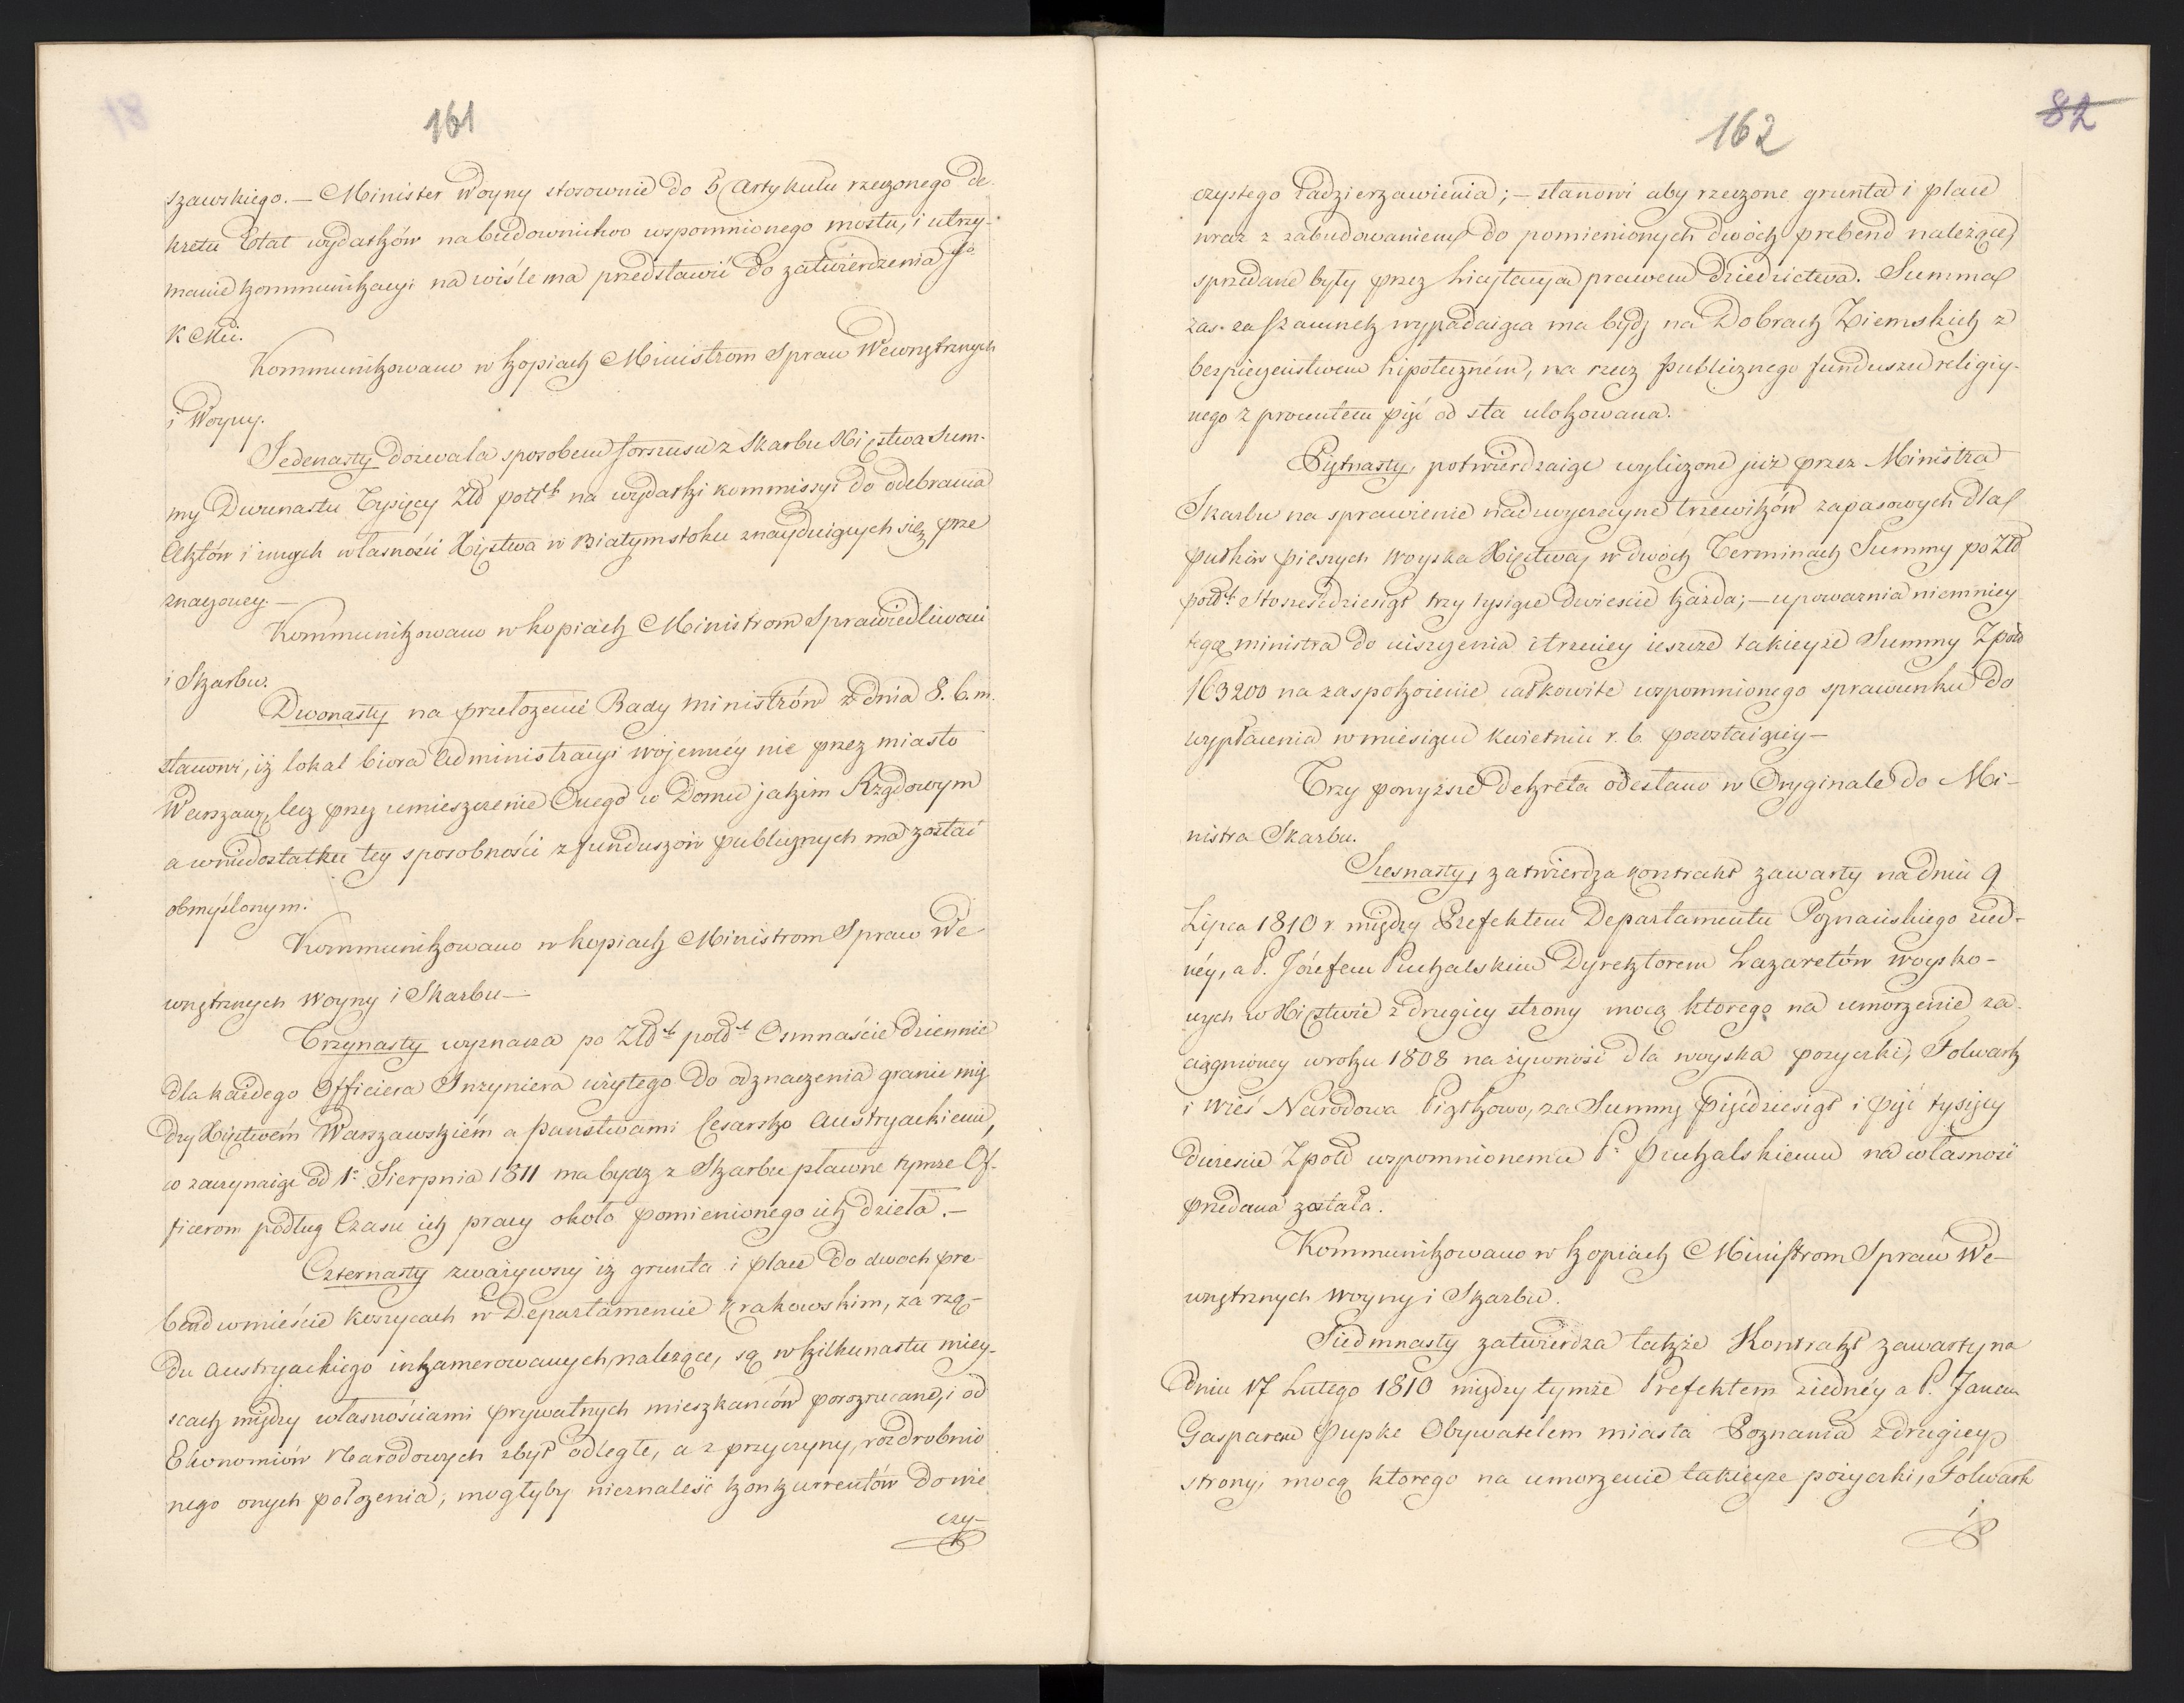 161
szawskiego. — Minister Woyny stosownie do 5 Artykułu rzeczonego de-
kretu Etat wydatków na budownictwo wspomnionego mostu, i utrzy-
manie kommunikacyi na wiśle ma przedstawić do zatwierdzenia Jo
K Mci.
Kommunikowano w kopiach Ministrom Spraw Wewnętrznych
i Woyny.
Jedenasty dozwala sposobem forszusu z Skarbu Xięstwa Sum-
my Dwunastu Tysięcy Złd polsk na wydatki kommissyi do odebrania
Aktów i innych własności Xięstwa w Białymstoku znayduiących się, prze
znaczoney. —
Kommunikowano w kopiach Ministrom Sprawiedliwości
i Skarbu.
Dwonasty na przełożenie Rady ministrów z dnia 8. b. m.
stanowi, iż lokal biora Administracyi wojennéy nie przez miasto
Warszawę, lecz przez umieszczenie Onego w Domu jakim Rządowym
a w niedostatku tey sposobności z funduszów publicznych ma zostać
obmyślonym.
Kommunikowano w kopiach Ministrom Spraw We
wnętrznych Woyny i Skarbu —
Trzynasty wyznacza po Złd polsk Osmnaście dziennie
dla każdego Officiera Inżyniera użytego do odznaczenia granic mię
dzy Xięstwém Warszawskiém a państwami Cesarsko Austryackiemi,
co zaczynaiąc od 1o Sierpnia 1811 ma bydz z Skarbu płacone tymże Of-
ficerom podług Czasu ich pracy około pomienionego ich dzieła. —
Czternasty zważywszy iż grunta i place do dwoch pre-
bend w mieście Koszycach w Departamencie Krakowskim, za rzą-
du Austryackiego inkamerowanych, należące, są w kilkunastu miey-
scach między własnościami prywatnych mieszkanców porozrzucane, i od
Ekonomiów Narodowych zbyt odległe, a z przyczyny, rozdrobnio
nego onych położenia, mogłyby nieznaleść konkurrentów do wie
czy-
162
82
czystego zadzierzawienia; — stanowi aby rzeczone grunta i place
wraz z zabudowaniem do pomienionych dwóch prebend należące,
sprzedane były przez licytacyą prawem dziedzictwa. Summa
zaś za szacunek wypadaiąca ma bydz na Dobrach Ziemskich z
bezpieczeństwem hipoteczném, na rzecz publicznego funduszu religiy-
nego z procentem pięć od sta ulokowana.
Piętnasty, potwierdzaiąc wyliczone już przez Ministra
Skarbu na sprawienie nadwyczayne trzewików zapasowych dla
pułków pieszych woyska Xięstwa, w dwóch Terminach Summy po Złd
polsk Stosześćdziesiąt trzy tysiące dwieście każda; — upoważnia niemniey
tegoż ministra do uiszczenia i trzeciey ieszcze takieyże Summy Zpols
163200 na zaspokoienie całkowite wspomnionego sprawunku do
wypłacenia w miesiącu kwietniu r. b. pozostaiącey —
Trzy powyższe dekreta odesłano w Oryginale do Mi-
nistra Skarbu.
Szesnasty, zatwierdza kontrakt zawarty na dniu 9
Lipca 1810 r między Prefektem Departamentu Poznańskiego zied-
néy, a P. Józefem Puchalskim Dyrektorem Lazaretów woysko-
wych w Xięstwie z drugiey strony mocą ktorego na umorzenie za-
ciągnioney w roku 1808 na żywność dla woyska pożyczki, Folwark
i wieś Narodowa Piątkowo, za Summę pięćdziesiąt i pięć tysięcy
dwieście Zpols wspomnionemu P. Puchalskiemu na własność
przedana została.
Kommunikowano w kopiach Ministrom Spraw We-
wnętrznych Woyny i Skarbu.
Siedmnasty zatwierdza także Kontrakt zawarty na
dniu 17 Lutego 1810 między tymże Prefektem ziednéy a P. Janem
Gasparem Pupke Obywatelem miasta Poznania z drugiey
strony, mocą ktorego na umorzenie takieyże pożyczki, Folwark
i